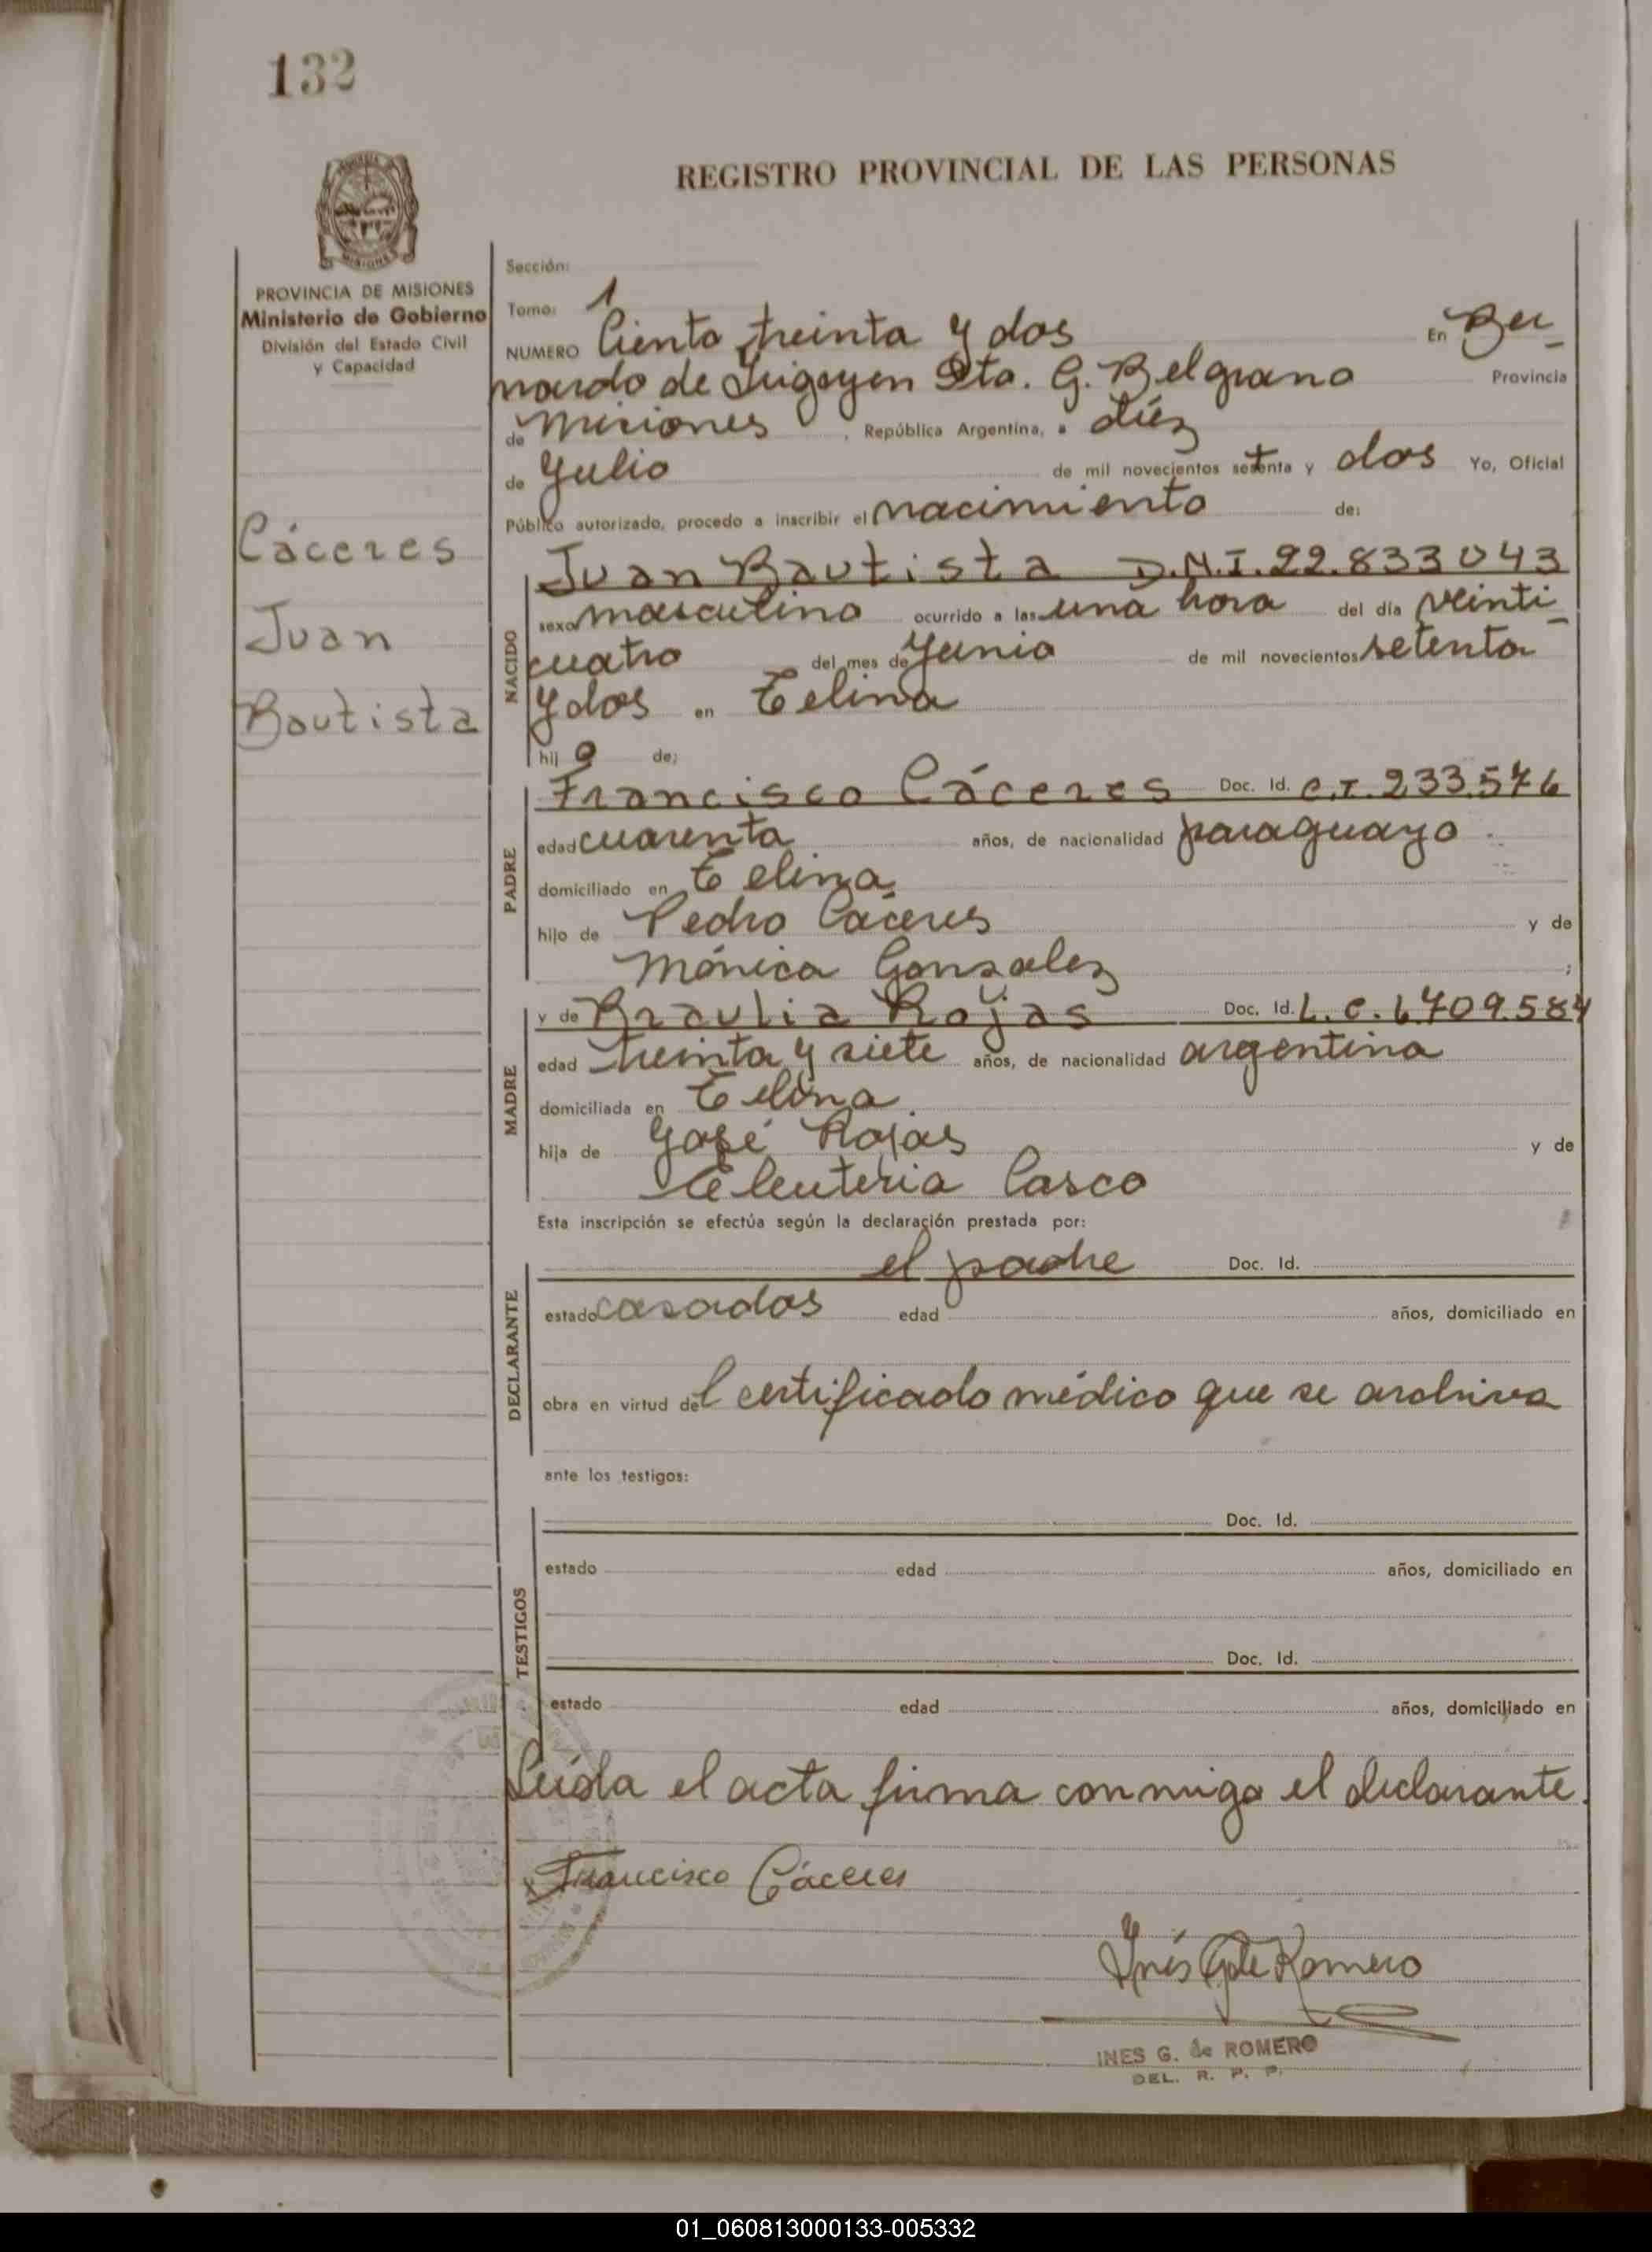 132
REGISTRO PROVINCIAL DE LAS PERSONAS
MISIONES
PROVINCIA DE MISIONES
Ministerio de Gobierno
División del Estado Civil
y Capacidad
Cáceres
Juan
Bautista
Sección:
Tomo: 1
NUMERO Ciento treinta y dos En Ber_
nardo de Irigoyen Dto. G. Belgrano Provincia
de Misiones, República Argentina, a diez
de Julio de mil novecientos setenta y dos Yo, Oficial
Público autorizado, procedo a inscribir el nacimiento de:
NACIDO
Juan Bautista D.N.I. 22.833043
sexo masculino ocurrido a las una hora del día veinti_
cuatro del mes de Junio de mil novecientos setenta
y dos en Celina
hijo de:
PADRE
Francisco Cáceres Doc. Id. C.I. 233.576
edad cuarenta años, de nacionalidad paraguayo
domiciliado en Celina
hijo de Pedro Cáceres y de
Mónica Gonzalez;
MADRE
y de Braulia Rojas Doc. Id. L.C. 6709.584
edad treinta y siete años, de nacionalidad argentina
domiciliada en Celina
hija de José Rojas y de
Eleuteria Casco
Esta inscripción se efectúa según la declaración prestada por:
DECLARANTE
el padre Doc. Id.
estado casados edad años, domiciliado en
obra en virtud del certificado médico que se archiva
ante los testigos:
TESTIGOS
Doc. Id.
estado edad años, domiciliado en
Doc. Id.
estado edad años, domiciliado en
Leída el acta firma conmigo el declarante.
Francisco Cáceres
Inés G de Romero
INES G. de ROMERO
DEL. R. P. P.
01_060813000133-005332